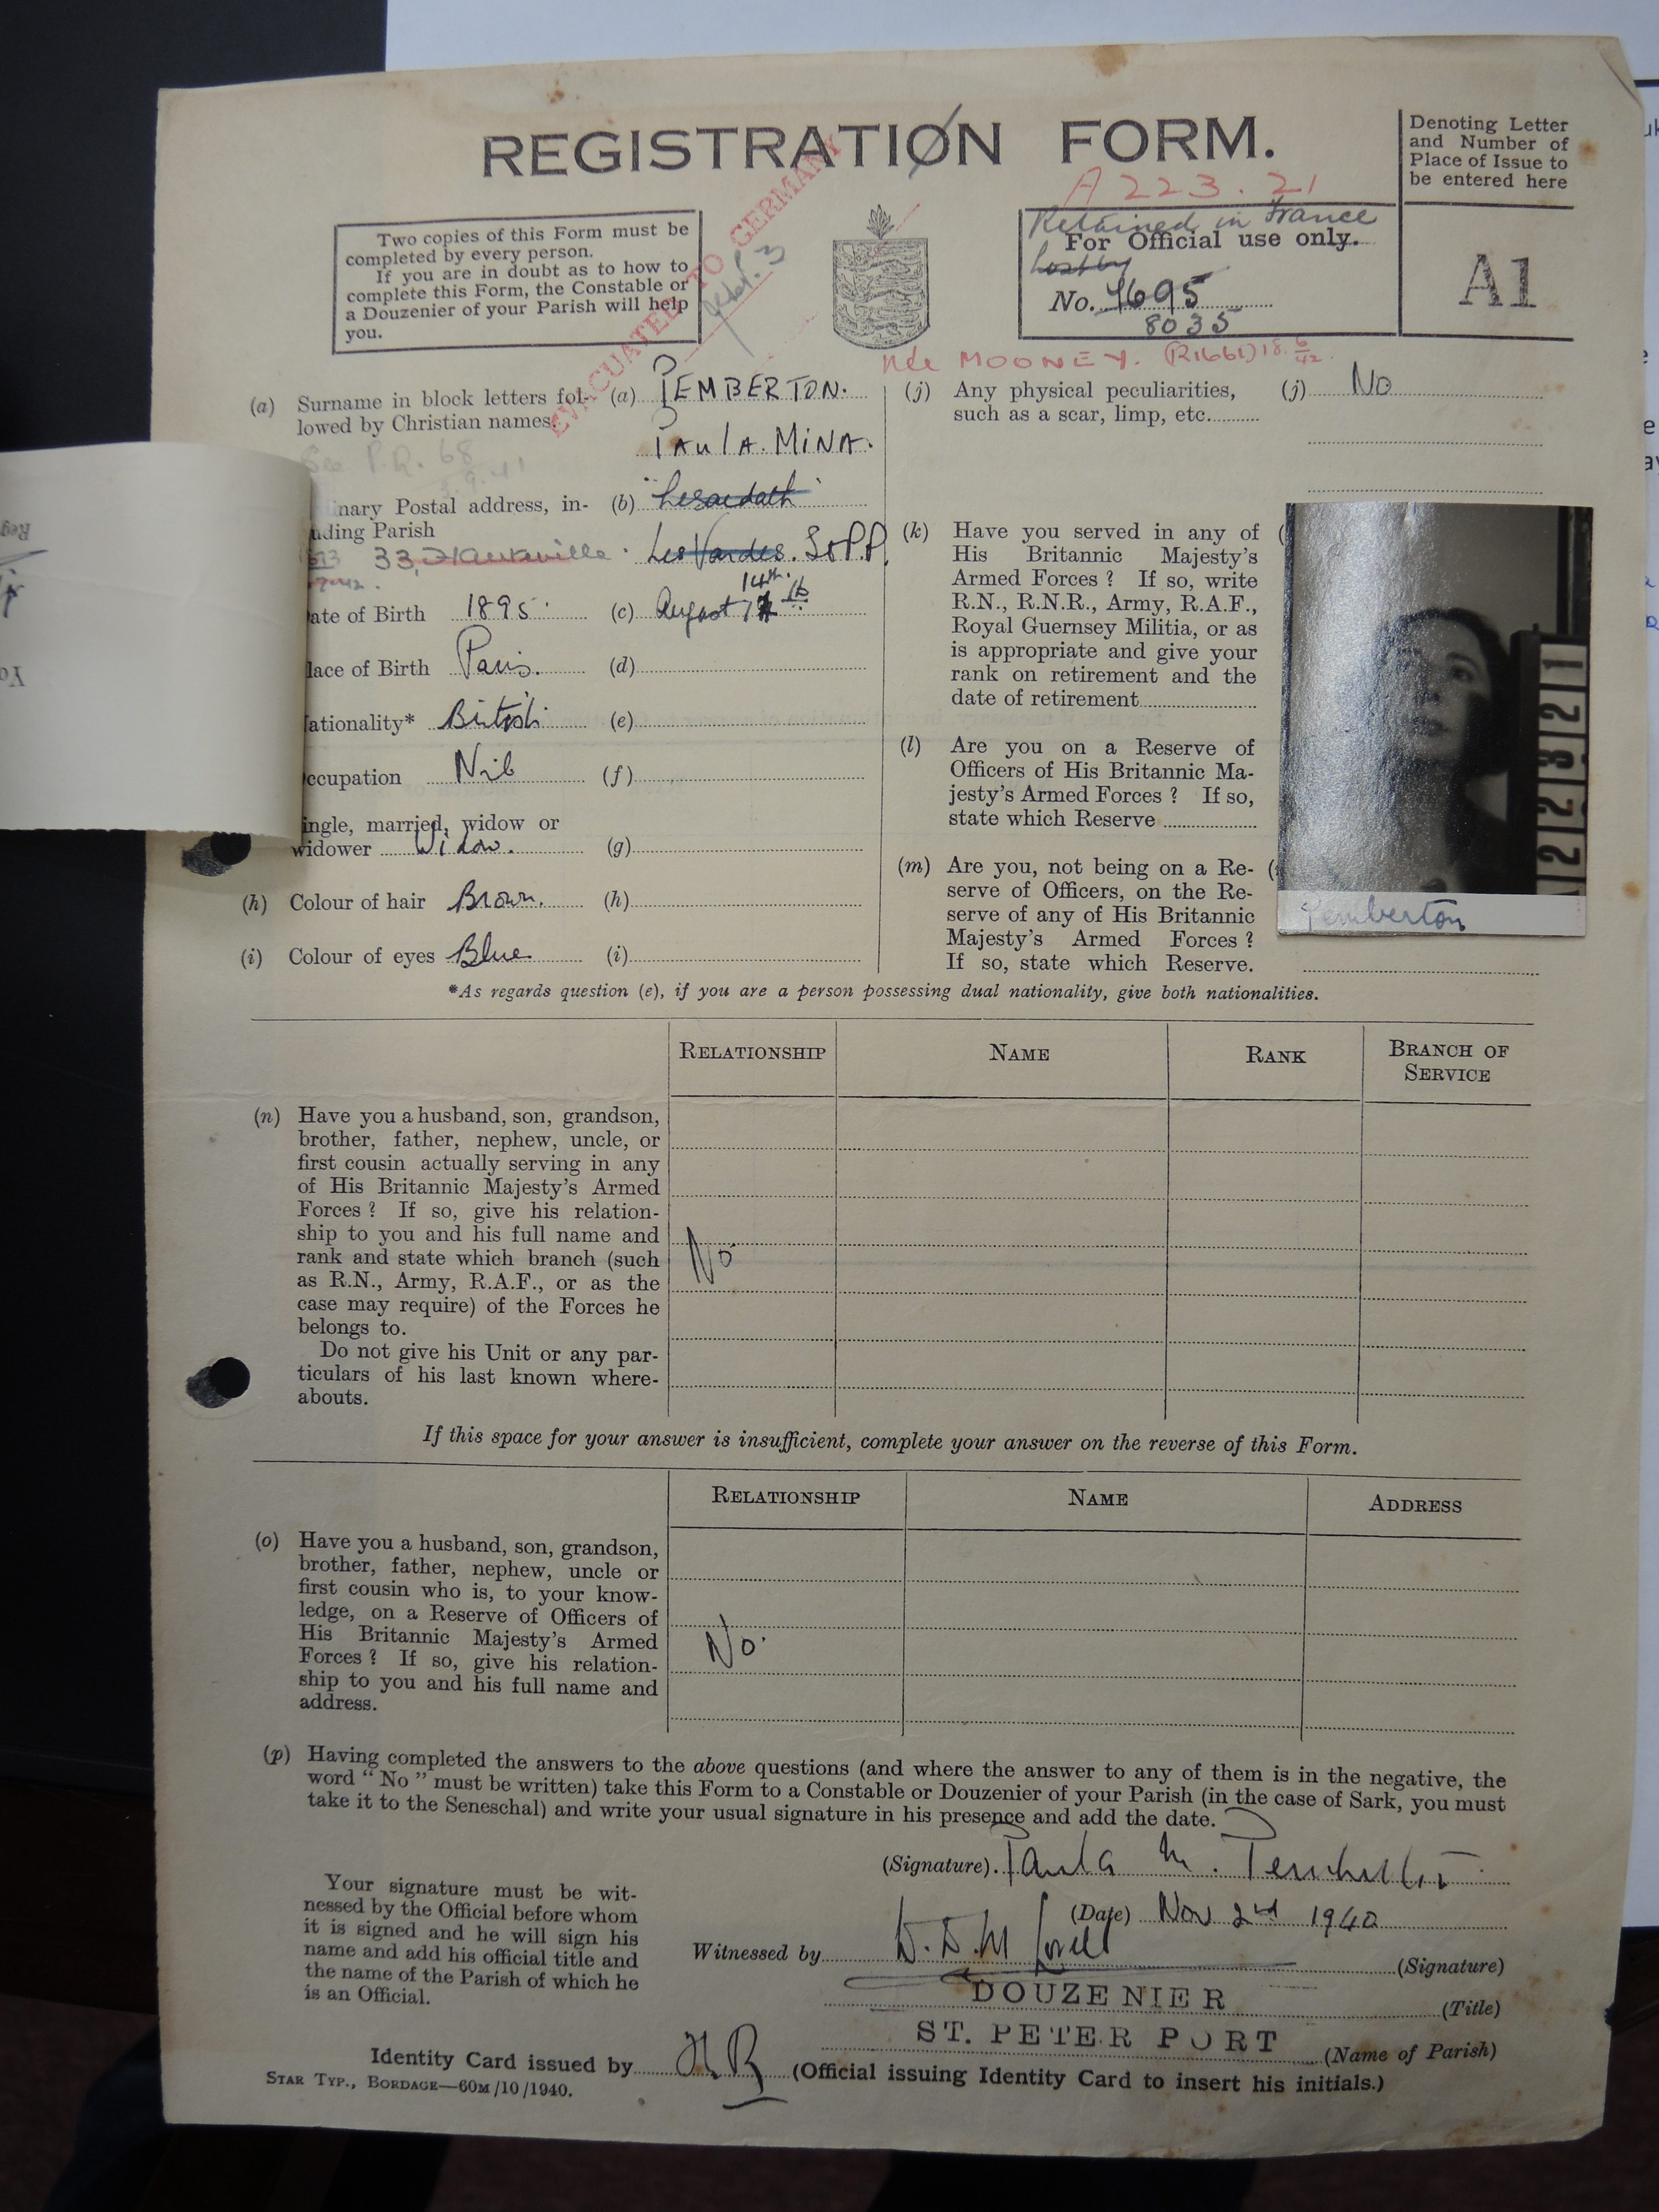 REGISTRATION FORM.
Denoting Letter
and Number of
Place of Issue to
be entered here
A1
A 223.21
EVACUATED TO GERMANY
Two copies of this Form must be
completed by every person.
If you are in doubt as to how to
complete this Form, the Constable or
a Douzenier of your Parish will help
you.
Retained in France
For Official use only.
Lost by
No. 4695
8035
née MOONEY. (R1661) 18. 6/42.
(a) Surname in block letters fol-
lowed by Christian names.
(a) PEMBERTON.
PAulA. MiNA.
See P.R. 68
inary Postal address, in-
uding Parish
(b)
33, Hauteville
Les Vardes. St P.P.
ate of Birth 1895. (c) August 14th.
lace of Birth Paris. (d)
ationality* British (e)
ccupation Nil (f)
ingle, married, widow or
widower Widow. (g)
(h) Colour of hair Brown. (h)
(i) Colour of eyes Blue (i)
(j) Any physical peculiarities,
such as a scar, limp, etc.
(j) No
(k) Have you served in any of
His Britannic Majesty's
Armed Forces ? If so, write
R.N., R.N.R., Army, R.A.F.,
Royal Guernsey Militia, or as
is appropriate and give your
rank on retirement and the
date of retirement
(l) Are you on a Reserve of
Officers of His Britannic Ma-
jesty's Armed Forces ? If so,
state which Reserve
(m) Are you, not being on a Re-
serve of Officers, on the Re-
serve of any of His Britannic
Majesty's Armed Forces ?
If so, state which Reserve.
A22321
Pemberton
*As regards question (e), if you are a person possessing dual nationality, give both nationalities.
RELATIONSHIP NAME RANK BRANCH OF
SERVICE
(n) Have you a husband, son, grandson,
brother, father, nephew, uncle, or
first cousin actually serving in any
of His Britannic Majesty's Armed
Forces ? If so, give his relation-
ship to you and his full name and
rank and state which branch (such
as R.N., Army, R.A.F., or as the
case may require) of the Forces he
belongs to.
Do not give his Unit or any par-
ticulars of his last known where-
abouts.
No
If this space for your answer is insufficient, complete your answer on the reverse of this Form.
RELATIONSHIP NAME ADDRESS
(o) Have you a husband, son, grandson,
brother, father, nephew, uncle or
first cousin who is, to your know-
ledge, on a Reserve of Officers of
His Britannic Majesty's Armed
Forces ? If so, give his relation-
ship to you and his full name and
address.
No.
(p) Having completed the answers to the above questions (and where the answer to any of them is in the negative, the
word "No" must be written) take this Form to a Constable or Douzenier of your Parish (in the case of Sark, you must
take it to the Seneschal) and write your usual signature in his presence and add the date.
(Signature) Paula M. Pemberton
(Date) Nov 2nd 1940
Your signature must be wit-
nessed by the Official before whom
it is signed and he will sign his
name and add his official title and
the name of the Parish of which he
is an Official.
Witnessed by (Signature)
DOUZENIER (Title)
ST. PETER PORT (Name of Parish)
Identity Card issued by (Official issuing Identity Card to insert his initials.)
STAR TYP., BORDAGE—60M/10/1940.